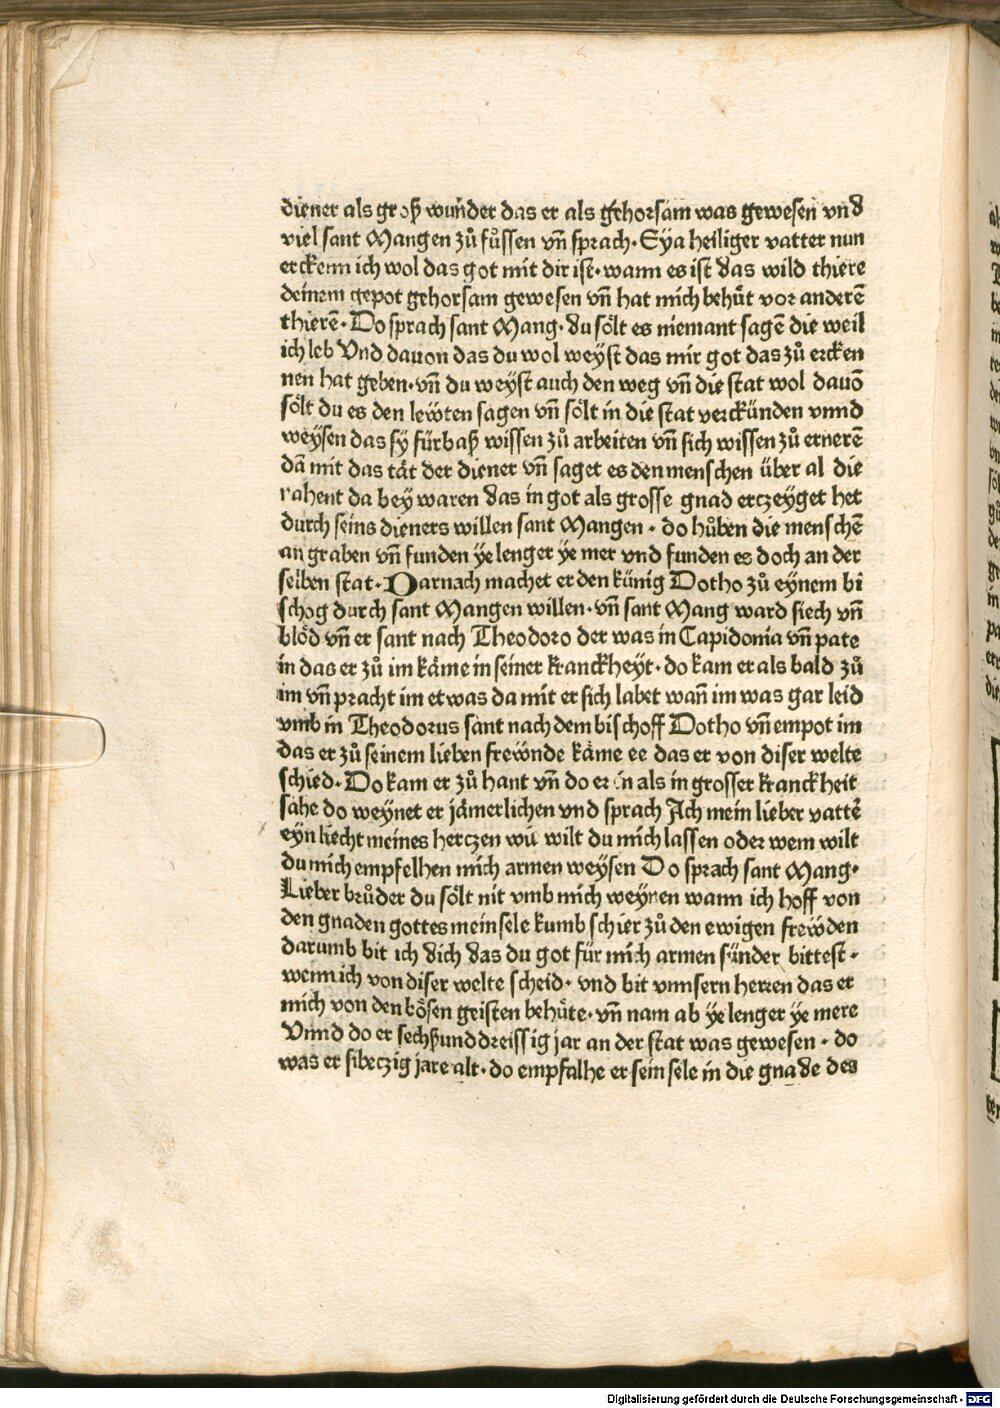 diener als groß wunder das er als gehorsam was gewesen vnd
viel sant Mangen zů fůssen vñ sprach. Eya heiliger vatter nun
erckenn ich wol das got mit dir ist. wann es ist das wild thiere
deinem gepot gehorsam gewesen vñ hat mich behůt vor anderē
thierē. Do sprach sant Mang. du sőlt es niemant sagē die weil
ich leb Vnd dauon das du wol weyst das mir got das zů ercken
nen hat geben. vñ du weyst auch den weg vñ die stat wol dauō
sőlt du es den lewten sagen vñ sőlt in die stat verckünden vnnd
weysen das sy fürbaß wissen zů arbeiten vñ sich wissen zů ernerē
dā mit das tåt der diener vñ saget es den menschen über al die
nahent da bey waren das in got als grosse gnad erczeyget het
durch seins dieners willen sant Mangen. do hůben die menschē
an graben vñ funden ye lenger ye mer vnd funden es doch an der
selben stat. Darnach machet er den künig Dotho zů eynem bi
schog durch sant Mangen willen. vñ sant Mang ward siech vñ
blőd vñ er sant nach Theodoro der was in Capidonia vñ pate
in das er zů im kåme in seiner kranckheyt. do kam er als bald zů
im vñ pracht im etwas da mit er sich labet wañ im was gar leid
vmb in Theodorus sant nach dem bischoff Dotho vñ empot im
das er zů seinem lieben frewnde kåme ee das er von diser welte
schied. Do kam er zů hant vñ do er in als in grosser kranckheit
sahe do weynet er jåmerlichen vnd sprach Ach mein lieber vattē
eyn liecht meines herczen wů wilt du mich lassen oder wem wilt
du mich empfelhen mich armen weysen Do sprach sant Mang.
Lieber brůder du sőlt nit vmb mich weynen wann ich hoff von
den gnaden gottes mein sele kumb schier zů den ewigen frewden
darumb bit ich dich das du got für mich armen sünder bittest.
wenn ich von diser welte scheid. vnd bit vnnsern herren das er
mich von den bősen geisten behůte. vñ nam ab ye lenger ye mere
Vnnd do er sechßunddreissig jar an der stat was gewesen. do
was er sibeczig jare alt. do empfalhe er sein sele in die gnade des
Digitalisierung gefördert durch die Deutsche Forschungsgemeinschaft - DFG